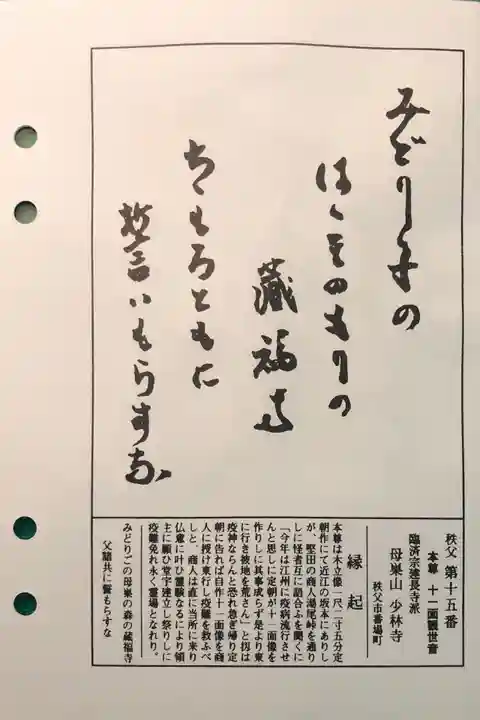 みどり子の
はゝそのもりの
蔵福寺
ちゝもろともに
誓いもらすな
秩父 第十五番
本尊 十一面観世音
臨済宗建長寺派
母巣山 少林寺
秩父市番場町
縁起
本尊は木立像一尺二寸五分定
朝作にて近江の坂本にありし
が、堅田の商人湯尾峠を通り
しに怪者互に語合ふを聞くに
「今年は江州に疫病流行させ
んと思しに定朝が十一面像を
作りしに其事成らず是より東
に行き彼地を荒さん」と扨は
疫神ならんと恐れ急ぎ帰り定
朝に告れば自作十一面像を商
人に授け東行し疫難を救ふべ
しと、商人は直に当所に来り
仏意に叶ひ霊験なるにより領
主に願ひ堂宇建立し祭りしに
疫難免れ永く霊場となれり。
みどりごの母巣の森の蔵福寺
父諸共に誓もらすな